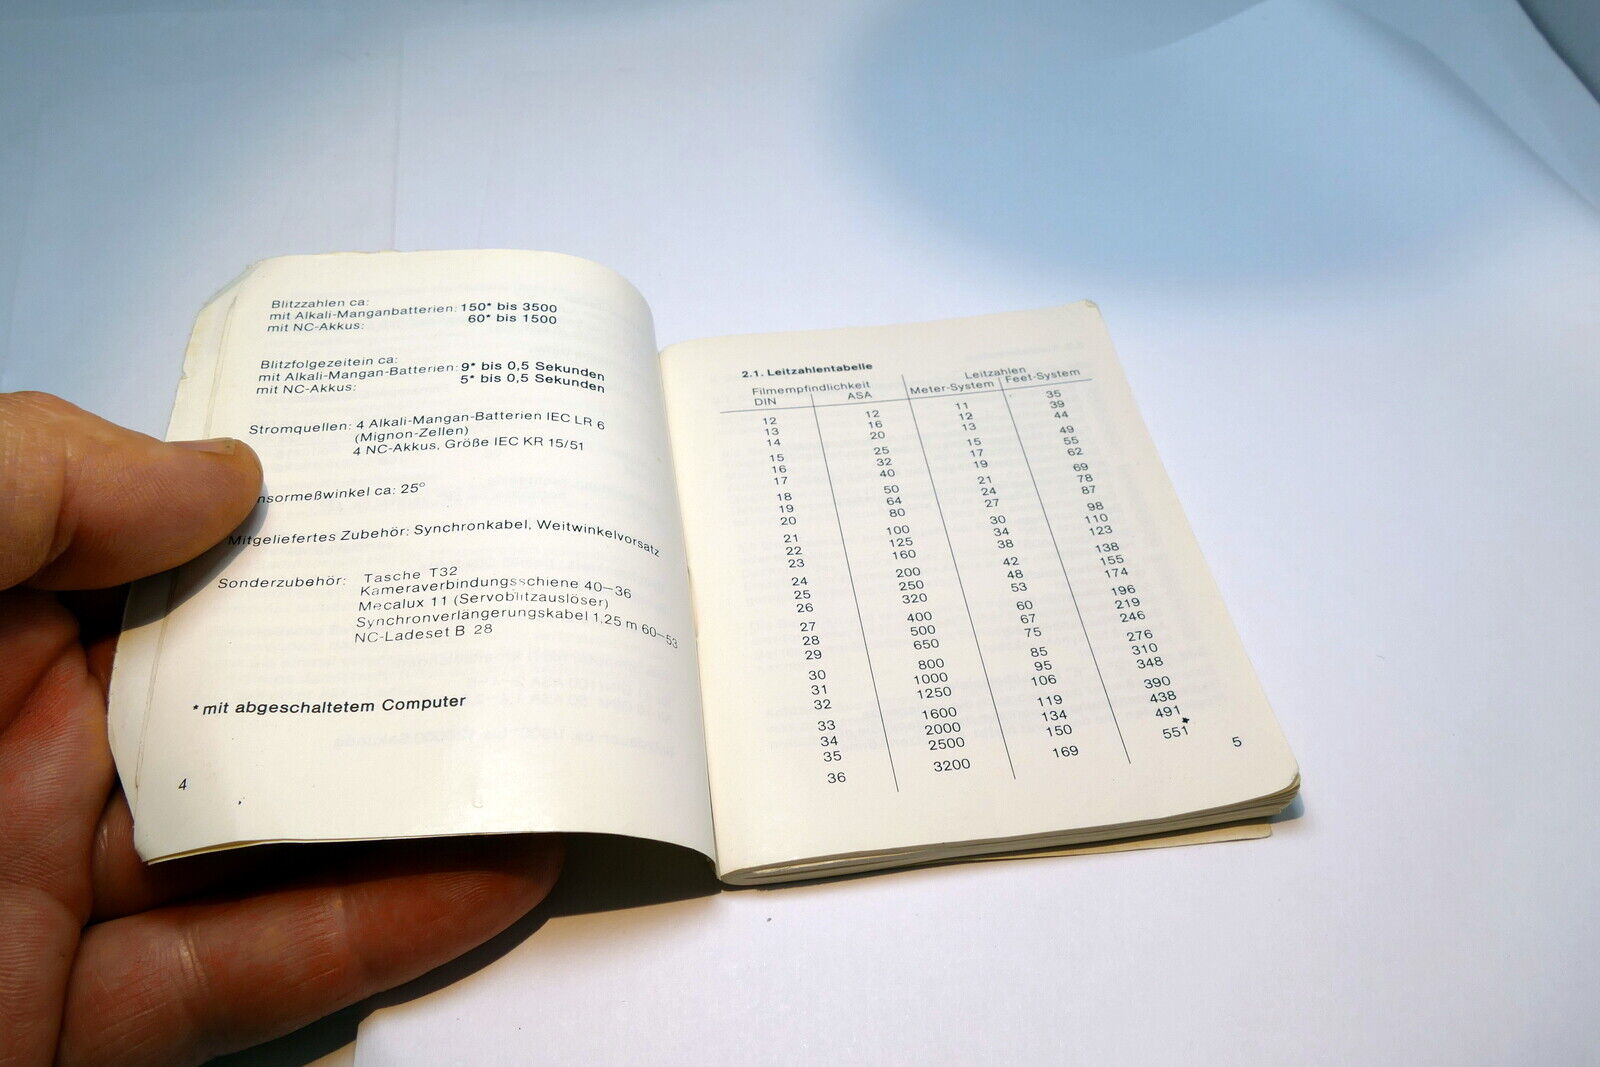 Blitzzahlen ca:
mit Alkali-Manganbatterien: 150* bis 3500
mit NC-Akkus: 60* bis 1500
Blitzfolgezeitein ca:
mit Alkali-Mangan-Batterien: 9* bis 0,5 Sekunden
mit NC-Akkus: 5* bis 0,5 Sekunden
Stromquellen: 4 Alkali-Mangan-Batterien IEC LR 6
(Mignon-Zellen)
4 NC-Akkus, Größe IEC KR 15/51
nsormeßwinkel ca: 25°
Mitgeliefertes Zubehör: Synchronkabel, Weitwinkelvorsatz
Sonderzubehör: Tasche T32
Kameraverbindungsschiene 40–36
Mecalux 11 (Servoblitzauslöser)
Synchronverlängerungskabel 1,25 m 60–53
NC-Ladeset B 28
* mit abgeschaltetem Computer
4
2.1. Leitzahlentabelle
Filmempfindlichkeit Leitzahlen
DIN ASA Meter-System Feet-System
12 12 11 35
13 16 12 39
14 20 13 44
15 25 15 49
16 32 17 55
17 40 19 62
18 50 21 69
19 64 24 78
20 80 27 87
21 100 30 98
22 125 34 110
23 160 38 123
24 200 42 138
25 250 48 155
26 320 53 174
27 400 60 196
28 500 67 219
29 650 75 246
30 800 85 276
31 1000 95 310
32 1250 106 348
33 1600 119 390
34 2000 134 438
35 2500 150 491
36 3200 169 551
5